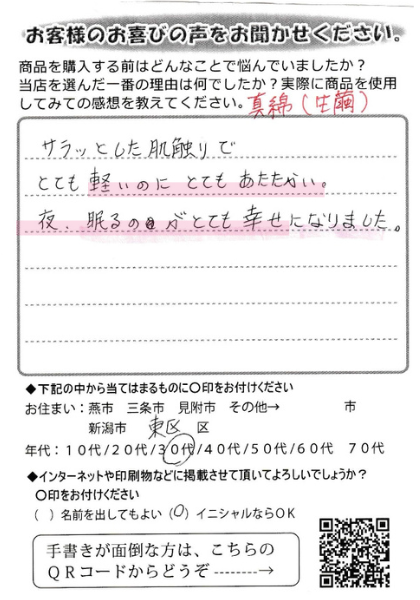 お客様のお喜びの声をお聞かせください。
商品を購入する前はどんなことで悩んでいましたか？
当店を選んだ一番の理由は何でしたか？実際に商品を使用
してみての感想を教えてください。真綿（生繭）
サラッとした肌触りで
とても軽いのに とても あたたかい。
夜、眠るのがとても 幸せになりました。
◆下記の中から当てはまるものに〇印をお付けください
お住まい：燕市 三条市 見附市 その他→ 市
新潟市 東区 区
年代：１０代/２０代/３０代/４０代/５０代/６０代 ７０代
◆インターネットや印刷物などに掲載させて頂いてよろしいでしょうか？
〇印をお付けください
（ ）名前を出してもよい（〇）イニシャルならＯＫ
手書きが面倒な方は、こちらの
ＱＲコードからどうぞ --------→